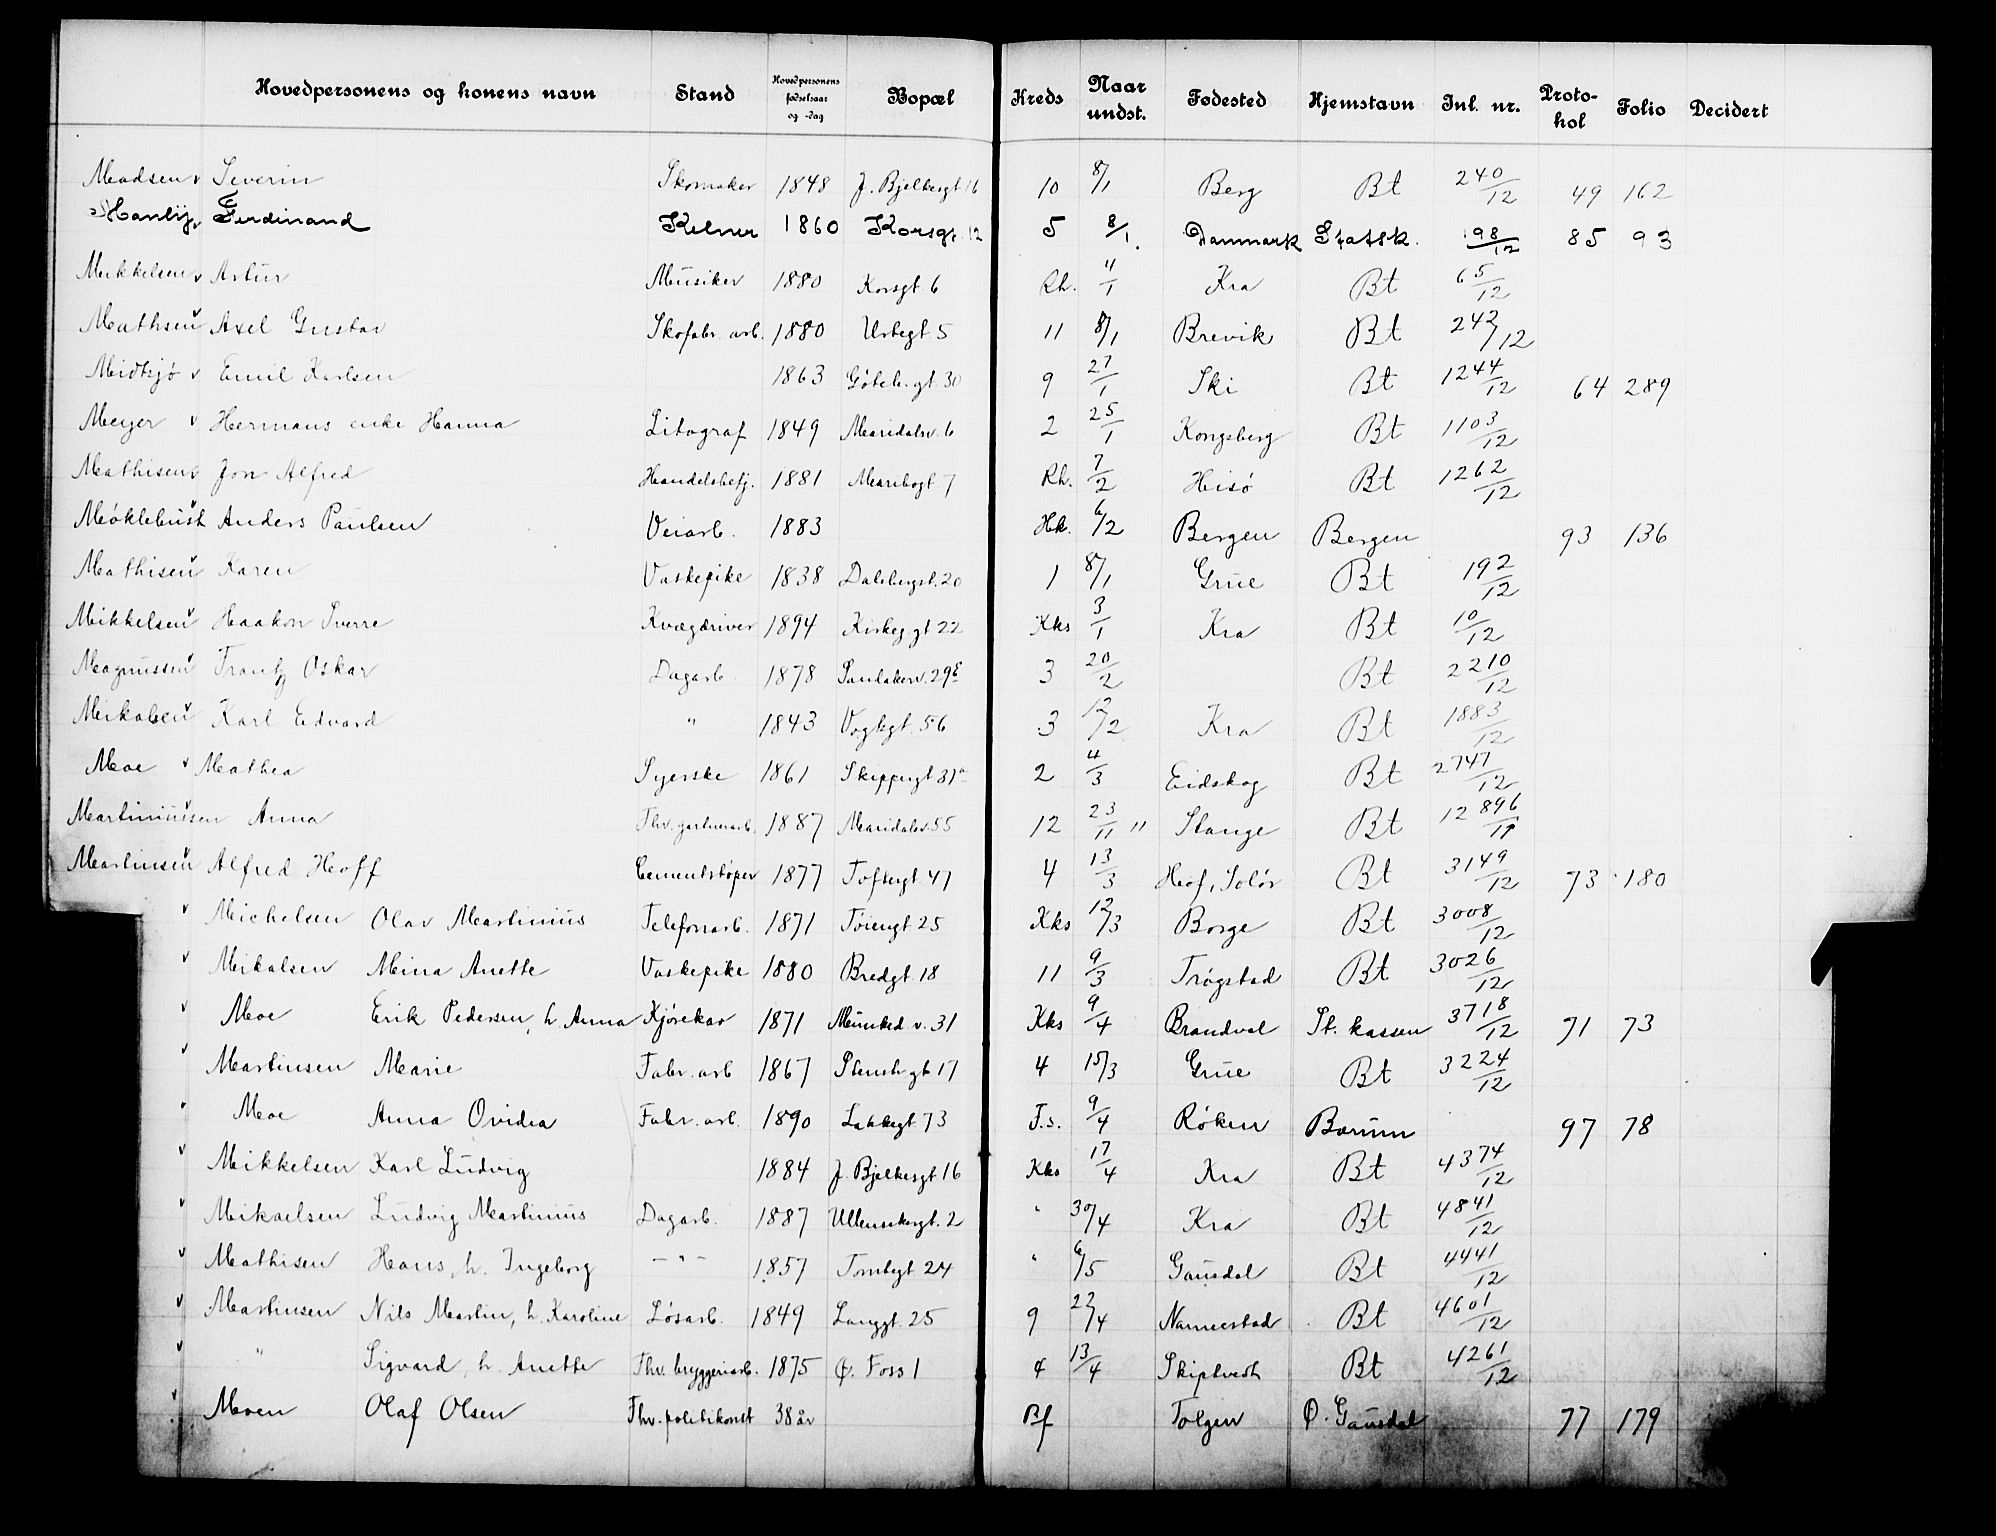 Hovedpersonens og konens navn Stand Hovedpersonens fødselsaar og -dag Bopæl Kreds Naar undst. Fødested Hjemstavn Inl. nr. Protokol Folio Decidert
Madsen v Severin Skomaker 1848 J. Bjelkesgt 16 10 8/1 Berg Bt 240/12 49 162
Ferdinand Kelner 1860 Korsgt. 12 5 8/1. Danmark Statsk. 198/12 85 93
Mikkelsen v Artur Musiker 1880 Korsgt 6 Rh. 4/1 Kra Bt 65/12
Mathsen v Axel Gustav Skofabr. arb. 1880 Urtegt 5 11 8/1 Brevik Bt 242/12
Midtsjø v Emil Karlsen 1863 Göteb. gt. 30 9 27/1 Ski Bt 1244/12 64 289
Meyer v Hermans enke Hanna Litograf 1849 Maridalsv. 6 2 25/1 Kongsberg Bt 1103/12
Mathisen v Jon Alfred Handelsbetj. 1881 Maribogt 7 Rh. 7/2 Hisö Bt 1262/12
Møklebust v Anders Paulsen Veiarb. 1883 Hk. 6/2 Bergen Bergen 93 136
Mathisen v Karen Vaskepike 1838 Dalsbergst. 20 1 8/1 Grue Bt 192/12
Mikkelsen v Haakon Sverre Kvægdriver 1894 Kirkeg. gt 22 Kks 3/1 Kra Bt 10/12
Magnussen v Frantz Oskar Dagarb. 1878 Sandakerv. 29 3 20/2 Bt 2210/12
Mikalsen v Karl Edvard " 1843 Vogtsgt. 56 3 12/2 Kra Bt 1883/12
Moe v Mathea Syerske 1861 Skippergt 31a 2 4/3 Eidskog Bt 2747/12
Martiniussen v Anna Fhv. gartnerarb. 1887 Maridalsv. 55 12 23/11 11 Stange Bt 12896/11
Martinsen v Alfred Hoff Cementstøper 1877 Toftesgt 47 4 13/3 Hof, Solør Bt 3149/12 73 180
v Michelsen Olav Martinius Telefonarb. 1871 Tøiengt 25 Kks 12/3 Borge Bt 3008/12
v Mikalsen Mina Anette Vaskepike 1880 Bredgt. 18 11 9/3 Trøgstad Bt 3026/12
v Moe Erik Pedersen, h. Anna Kjørekar 1871 Munked. v. 31 Kks 9/4 Brandval St. kassen 3718/12 71 73
v Martinsen Marie Fabr. arb 1867 Stensb. gt 17 4 15/3 Grue Bt 3224/12
v Moe Anna Ovidia Fabr. arb. 1890 Lakkegt 73 F.s. 9/4 Røken Bærum 97 78
v Mikkelsen Karl Ludvig 1884 J. Bjelkesgt 16 Kks 17/4 Kra Bt 4374/12
v Mikaelsen Ludvig Martinius Dagarb. 1887 Ullensakergt. 2 " 30/4 Kra Bt 4841/12
v Mathisen Hans, h. Ingeborg — " — 1857 Tomtegt 24 " 6/5 Gausdal Bt 4441/12
v Martinsen Nils Martin, h. Karoline Løsarb. 1849 Langgt. 25 9 22/4 Nannestad Bt 4601/12
v " Sigvard, h. Anette Fhv. bryggeriarb. 1875 Ø. Foss 1 4 13/4 Skiptvedt Bt 4261/12
v Moen Olaf Olsen Fhv. politikonst 38 år Bf Tolgen Ø. Gausdal 77 179